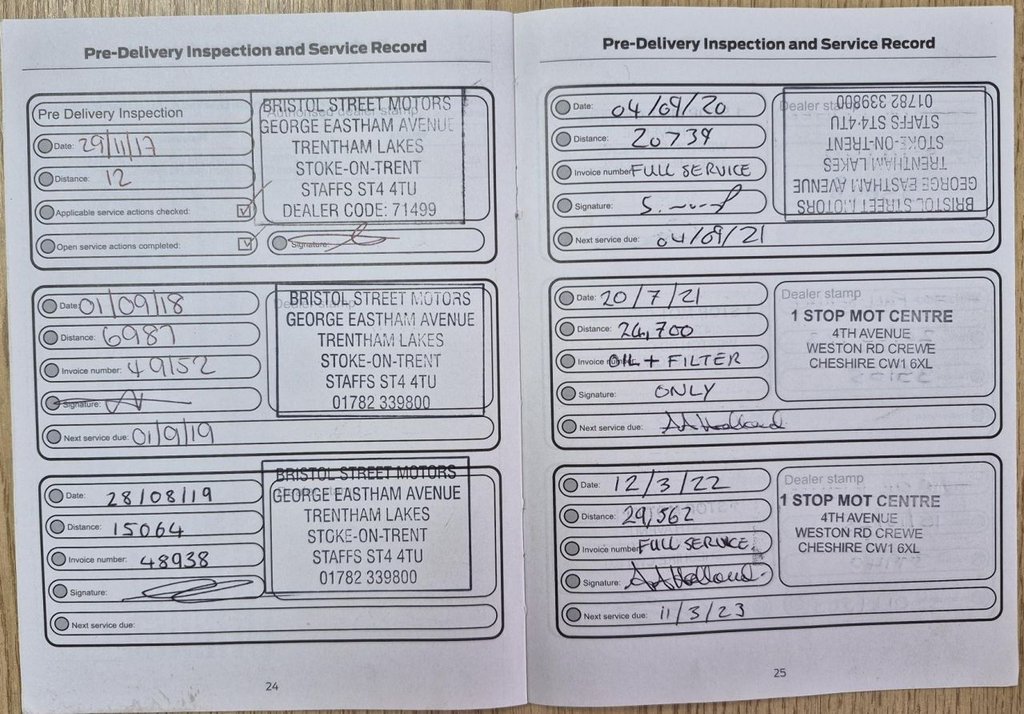 Pre-Delivery Inspection and Service Record
Pre Delivery Inspection
Date: 29/11/17
Distance: 12
Applicable service actions checked: ☑
Open service actions completed: ☑
Signature:
Authorised dealer stamp
BRISTOL STREET MOTORS
GEORGE EASTHAM AVENUE
TRENTHAM LAKES
STOKE-ON-TRENT
STAFFS ST4 4TU
DEALER CODE: 71499
Date: 01/09/18
Distance: 6987
Invoice number: 49152
Signature:
Next service due: 01/9/19
BRISTOL STREET MOTORS
GEORGE EASTHAM AVENUE
TRENTHAM LAKES
STOKE-ON-TRENT
STAFFS ST4 4TU
01782 339800
Date: 28/08/19
Distance: 15064
Invoice number: 48938
Signature:
Next service due:
BRISTOL STREET MOTORS
GEORGE EASTHAM AVENUE
TRENTHAM LAKES
STOKE-ON-TRENT
STAFFS ST4 4TU
01782 339800
24
Pre-Delivery Inspection and Service Record
Date: 04/09/20
Distance: 20739
Invoice number: FULL SERVICE
Signature:
Next service due: 04/09/21
Dealer stamp
BRISTOL STREET MOTORS
GEORGE EASTHAM AVENUE
TRENTHAM LAKES
STOKE-ON-TRENT
STAFFS ST4 4TU
01782 339800
Date: 20/7/21
Distance: 24,700
Invoice number: OIL + FILTER
Signature: ONLY
Next service due: AAHolland
Dealer stamp
1 STOP MOT CENTRE
4TH AVENUE
WESTON RD CREWE
CHESHIRE CW1 6XL
Date: 12/3/22
Distance: 29,562
Invoice number: FULL SERVICE.
Signature: AAHolland.
Next service due: 11/3/23
Dealer stamp
1 STOP MOT CENTRE
4TH AVENUE
WESTON RD CREWE
CHESHIRE CW1 6XL
25